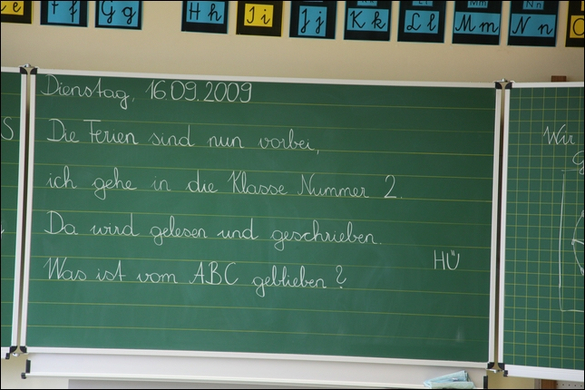 e
F f
G g
H h
I i
J j
K k
L l
M m
Nn
N n
Dienstag, 16.09.2009
Die Ferien sind nun vorbei,
ich gehe in die Klasse Nummer 2.
Da wird gelesen und geschrieben.
Was ist vom ABC geblieben?
HÜ
S
Wir